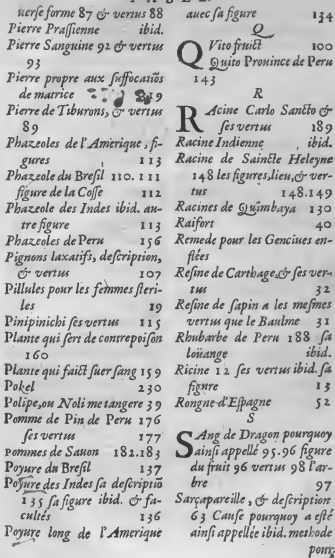 uerse forme 87 & vertus 88
Pierre Prassienne ibid.
Pierre Sanguine 92 & vertus
93
Pierre propre aux suffocatiõs
de matrice 19
Pierre de Tiburons, & vertus
89
Phazeoles de l'Amerique, fi-
gures 113
Phazeole du Bresil 110. 111
figure de la Cosse 112
Phazeole des Indes ibid. au-
tre figure 113
Phazeoles de Peru 156
Pignons laxatifs, description,
& vertus 107
Pillules pour les femmes steri-
les 19
Pinipinichi ses vertus 115
Plante qui sert de contrepoison
160
Plante qui faict suer sang 159
Pokel 230
Polipe, ou Noli me tangere 39
Pomme de Pin de Peru 176
ses vertus 177
Pommes de Sauon 182.183
Poyure du Bresil 137
Poyure des Indes sa descriptiõ
135 sa figure ibid. & fa-
cultés 136
Poyure long de l'Amerique
auec sa figure 134
Q
QVito fruict 100
Quito Prouince de Peru
143
R
RAcine Carlo Sancto &
ses vertus 189
Racine Indienne ibid.
Racine de Saincte Heleyne
148 les figures, lieu, & ver-
tus 148.149
Racines de Quimbaya 130
Raifort 40
Remede pour les Genciues en-
flées
Resine de Carthage, & ses ver-
tus 32
Resine de sapin a les mesmes
vertus que le Baulme 31
Rhubarbe de Peru 188 sa
loüange ibid.
Ricine 12 ses vertus ibid. sa
figure 13
Rongne d'Espagne 52
S
SAng de Dragon pourquoy
ainsi appellé 95.96 figure
du fruit 96 vertus 98 l'ar-
bre 97
Sarçapareille, & description
63 Cause pourquoy a esté
ainsi appellée ibid. methode
pour